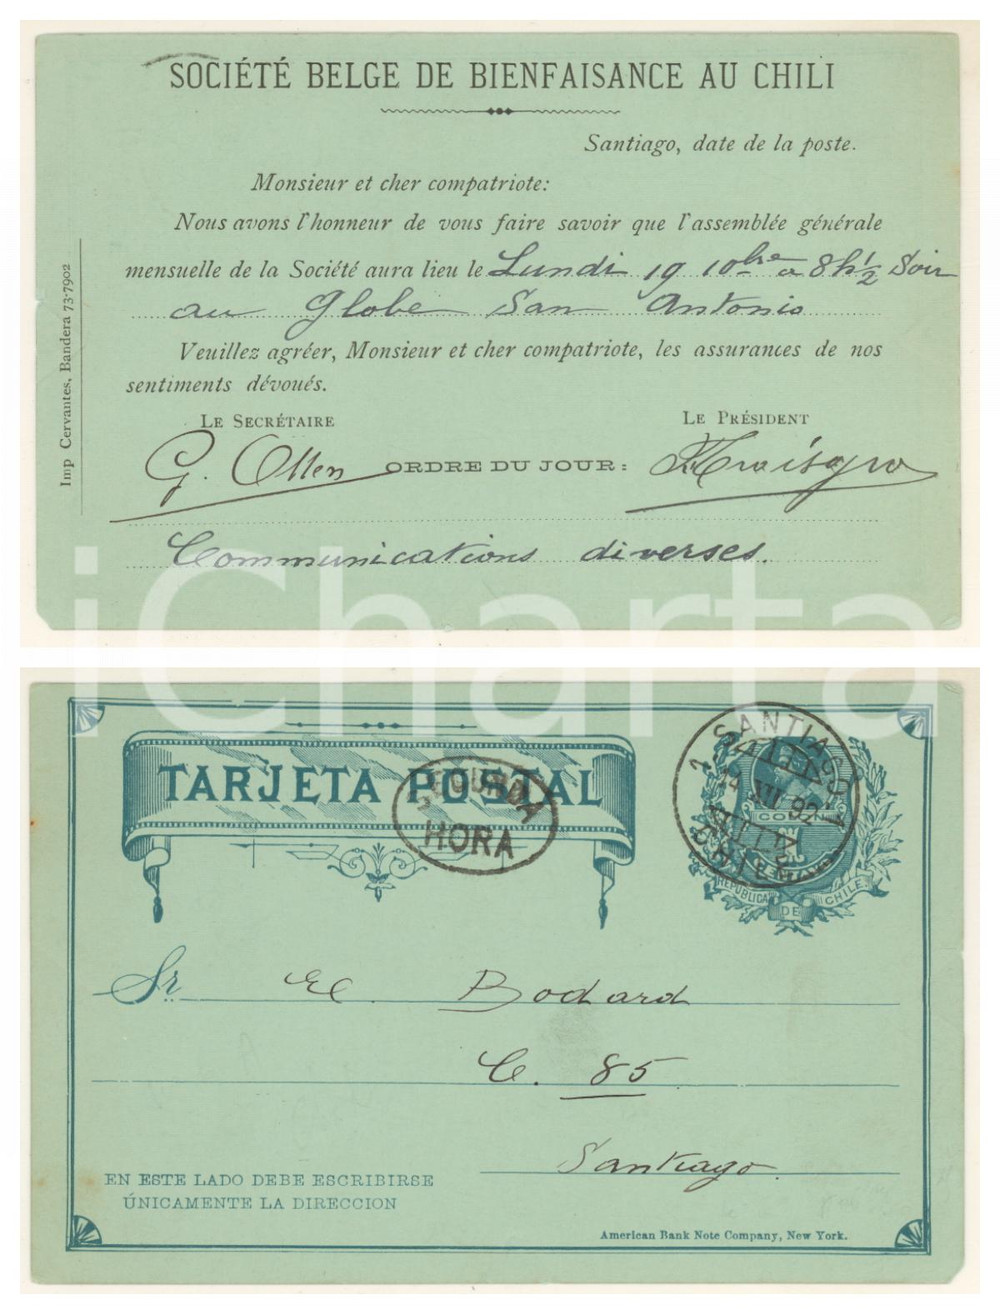 SOCIÉTÉ BELGE DE BIENFAISANCE AU CHILI
Santiago, date de la poste.
Monsieur et cher compatriote:
Nous avons l'honneur de vous faire savoir que l'assemblée générale
mensuelle de la Société aura lieu le Lundi 19 10bre a 8h½ Soir
au Globe San Antonio
Veuillez agréer, Monsieur et cher compatriote, les assurances de nos
sentiments dévoués.
LE SECRÉTAIRE
LE PRÉSIDENT
G. Otten
ORDRE DU JOUR:
Communications diverses.
Imp Cervantes, Bandera 73-7902
iCharta
TARJETA POSTAL
SEGUNDA
HORA
1 SANTIAGO 1
14 XII 92
CHILE
COLON
REPUBLICA DE CHILE
Sr. E. Bodard
C. 85
Santiago
EN ESTE LADO DEBE ESCRIBIRSE
ÚNICAMENTE LA DIRECCION
American Bank Note Company, New York.